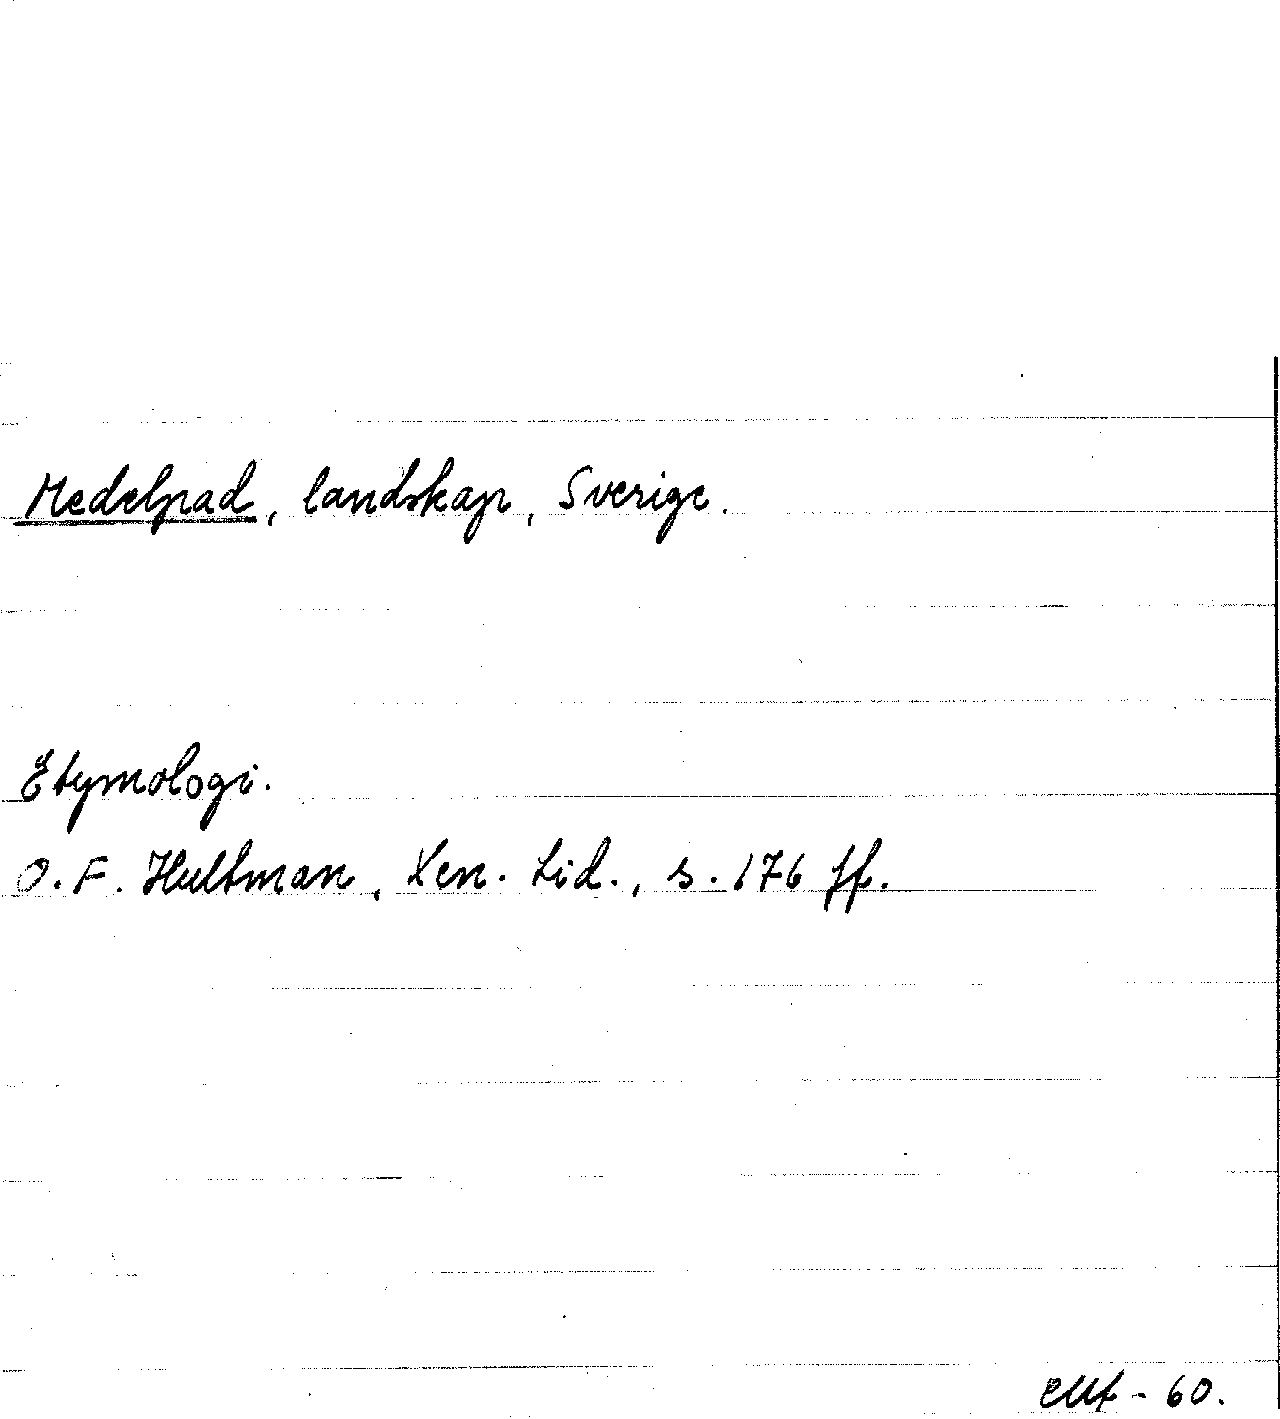 Medelpad, landskap, Sverige.
Etymologi.
O. F. Hultman, Xen. Lid., s. 176 ff.
- 60.